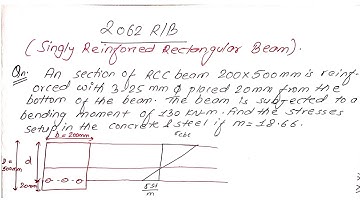 2062 R/B
(Singly Reinforced Rectangular Beam).
Qn: An section of RCC beam 200x500mm is reinf-
orced with 3-25 mm ϕ placed 20mm from the
bottom of the beam. The beam is subjected to a
bending moment of 130 kN-m. Find the stresses
setup in the concrete & steel if m=18.66.
b = 200mm
σcbc
d
500mm
20mm
m